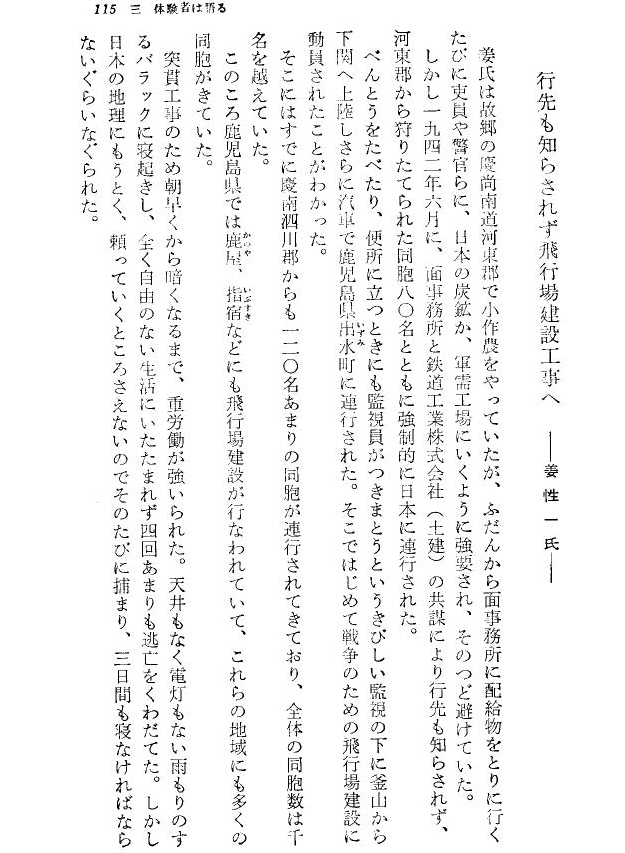 115 三 体験者は語る
行先も知らされず飛行場建設工事へ ――姜性一氏――
姜氏は故郷の慶尚南道河東郡で小作農をやっていたが、ふだんから面事務所に配給物をとりに行く
たびに吏員や警官らに、日本の炭鉱か、軍需工場にいくように強要され、そのつど避けていた。
しかし一九四二年六月に、面事務所と鉄道工業株式会社(土建)の共謀により行先も知らされず、
河東郡から狩りたてられた同胞八〇名とともに強制的に日本に連行された。
べんとうをたべたり、便所に立つときにも監視員がつきまとうというきびしい監視の下に釜山から
下関へ上陸しさらに汽車で鹿児島県出水町に連行された。そこではじめて戦争のための飛行場建設に
いずみ
動員されたことがわかった。
そこにはすでに慶南泗川郡からも一二〇名あまりの同胞が連行されてきており、全体の同胞数は千
名を越えていた。
このころ鹿児島県では鹿屋、指宿などにも飛行場建設が行なわれていて、これらの地域にも多くの
かのや いぶすき
同胞がきていた。
突貫工事のため朝早くから暗くなるまで、重労働が強いられた。天井もなく電灯もない雨もりのす
るバラックに寝起きし、全く自由のない生活にいたたまれず四回あまりも逃亡をくわだてた。しかし
日本の地理にもうとく、頼っていくところさえないのでそのたびに捕まり、三日間も寝なければなら
ないぐらいなぐられた。